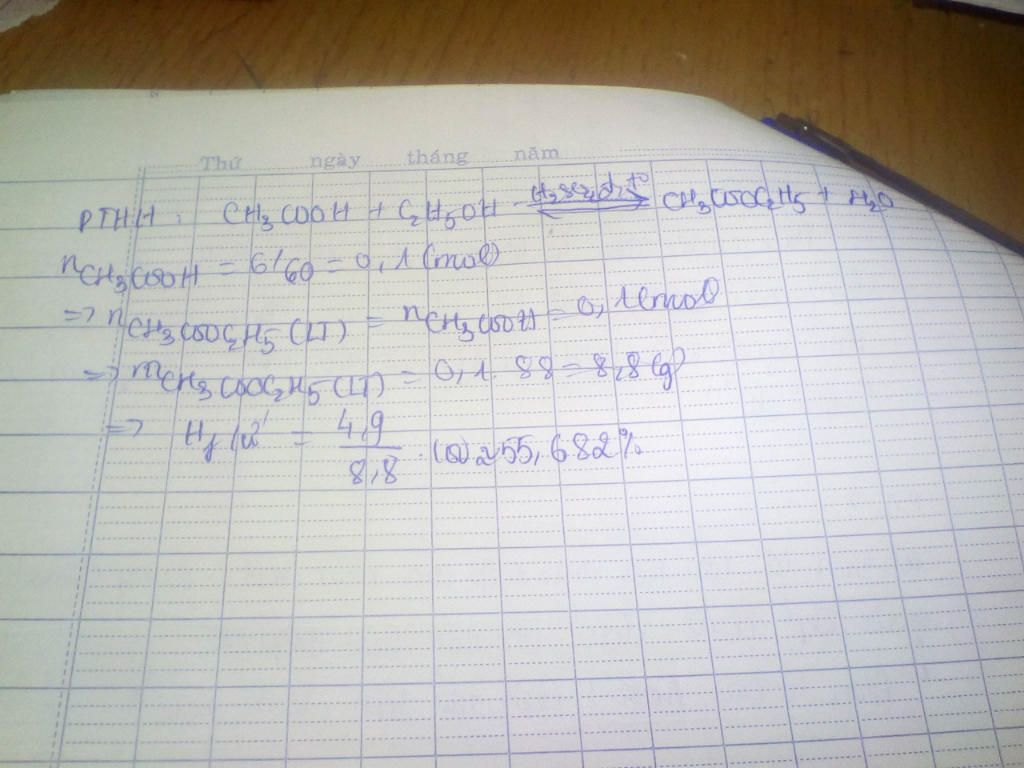 Thứ ngày tháng năm
PTHH: CH₃COOH + C₂H₅OH ⇌ (H₂SO₄đ, t°) CH₃COOC₂H₅ + H₂O
nCH₃COOH = 6/60 = 0,1 (mol)
=> nCH₃COOC₂H₅ (LT) = nCH₃COOH = 0,1 (mol)
=> mCH₃COOC₂H₅ (LT) = 0,1 . 88 = 8,8 (g)
=> = 4,9/8,8 . 100 ≈ 55,682%